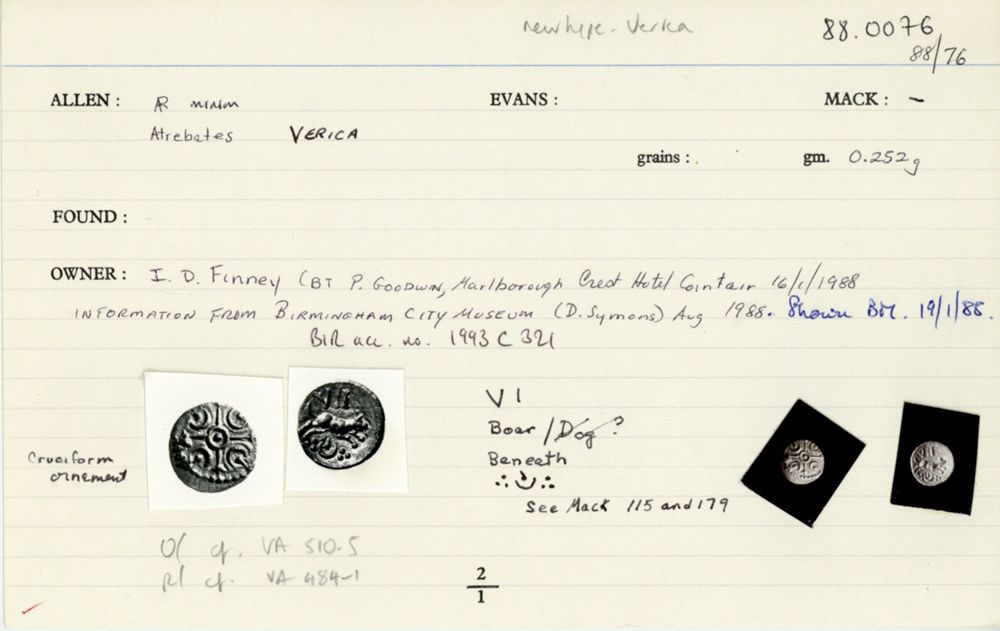 new type - Verica 88.0076
88/76
ALLEN : AR minim EVANS : MACK : -
Atrebates VERICA
grains : . gm. 0.252g
FOUND :
OWNER : I. D. Finney (BT P. GOODWIN, Marlborough Crest Hotel Coin Fair 16/1/1988
INFORMATION FROM BIRMINGHAM CITY MUSEUM (D. Symons) Aug 1988. Shown BM. 19/1/88.
BIR acc. no. 1993 C 321
VI
Boar / Dog ?
Cruciform
ornement
Beneath
See Mack 115 and 179
O/ cf. VA 510-5
R/ cf. VA 484-1
2
1